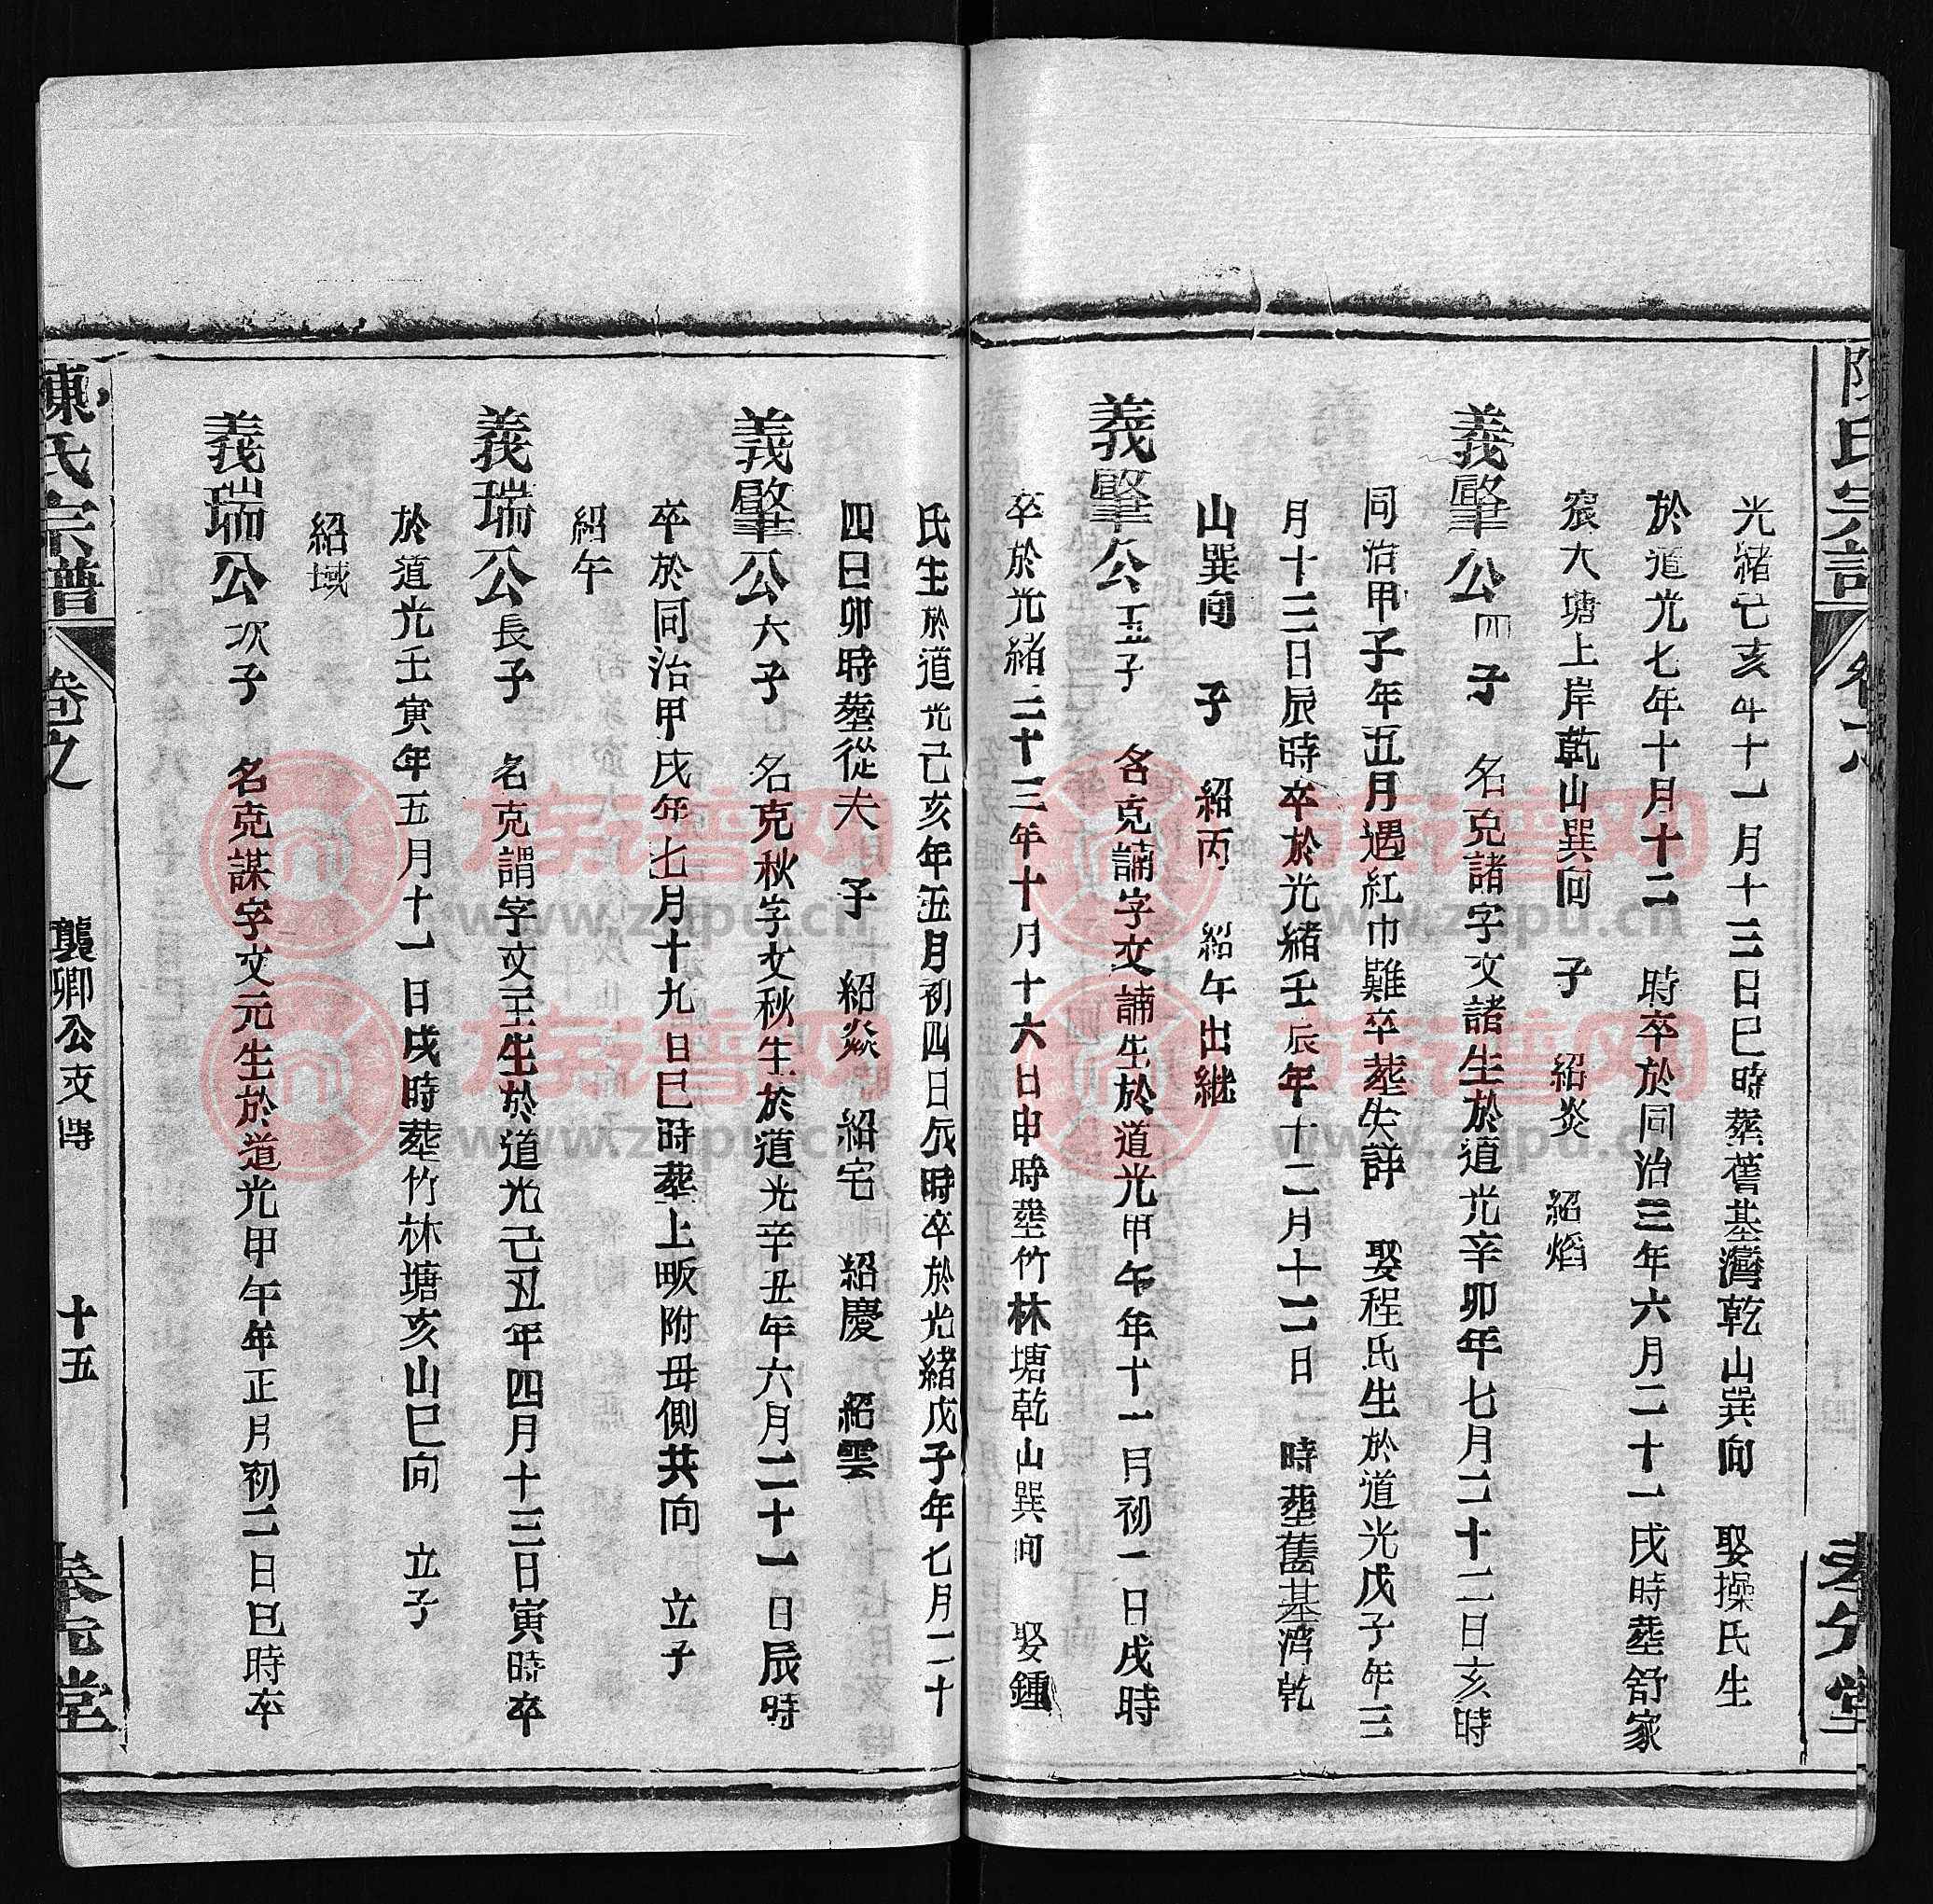 光緒己亥年十一月十三日巳時塟舊基灣乾山巽向 娶操氏生
於道光七年十月十二 時卒於同治三年六月二十一戌時塟舒家
大塘上岸乾山巽向 子 紹炎 紹焰
義肇公四子 名克諸字文諸生於道光辛卯年七月二十二日亥時
同治甲子年五月遇紅巾難卒塟失詳 娶程氏生於道光戊子年三
月十三日辰時卒於光緒壬辰年十二月十二日 時塟舊基灣乾
山巽向 子 紹丙 紹午出継
義肇公五子 名克誦字文誦生於道光甲午年十一月初一日戌時
卒於光緒二十三年十月十六日申時塟竹林塘乾山巽向 娶鍾
氏生於道光己亥年五月初四日辰時卒於光緒戊子年七月二十
四日卯時塟從夫 子 紹焱 紹宅 紹慶 紹雲
義肇公六子 名克秋字文秋生於道光辛丑年六月二十一日辰時
卒於同治甲戌年七月十九日巳時塟上畈附毋側共向 立子
紹午
義瑞公長子 名克謂字文王生於道光己丑年四月十三日寅時卒
於道光壬寅年五月十一日戌時塟竹林塘亥山巳向 立子
紹域
義瑞公次子 名克謀字文元生於道光甲午年正月初二日巳時卒
陳氏宗譜 卷之 龔卿公支傳 十五 奉先堂
族谱网
www.zupu.cn
族谱网
www.zupu.cn
族谱网
www.zupu.cn
族谱网
www.zupu.cn